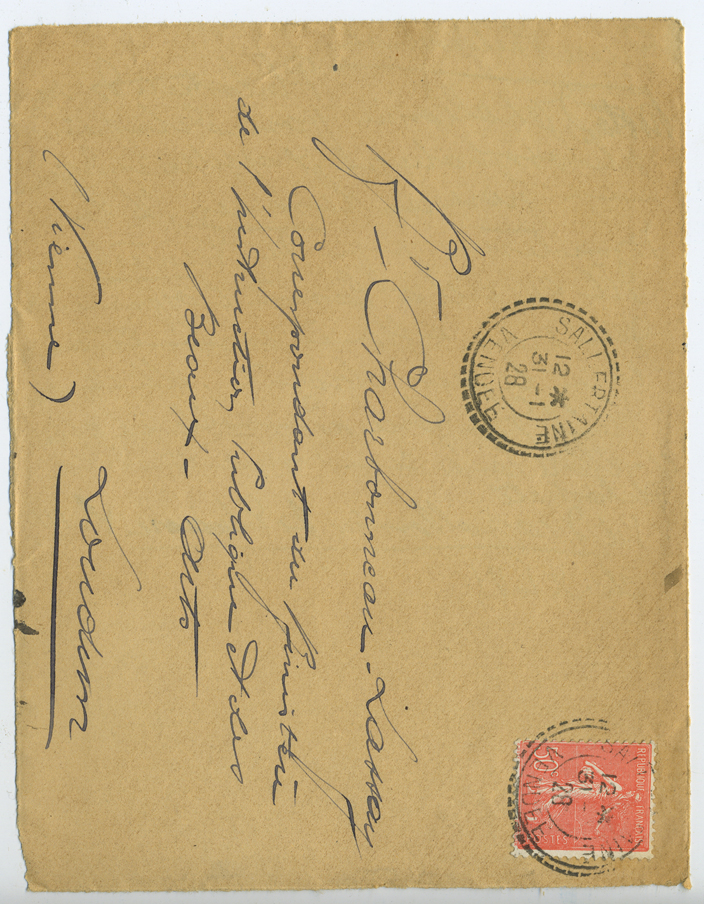 SALLERTAINE
12 *
31-1
28
VENDEE
REPUBLIQUE FRANÇAISE
50c
POSTES
12 *
31-
28
Mr Charbonneau-Lassay
Correspondant du Ministère
de l'Instruction Publique et des
Beaux-Arts
Loudun
(Vienne)